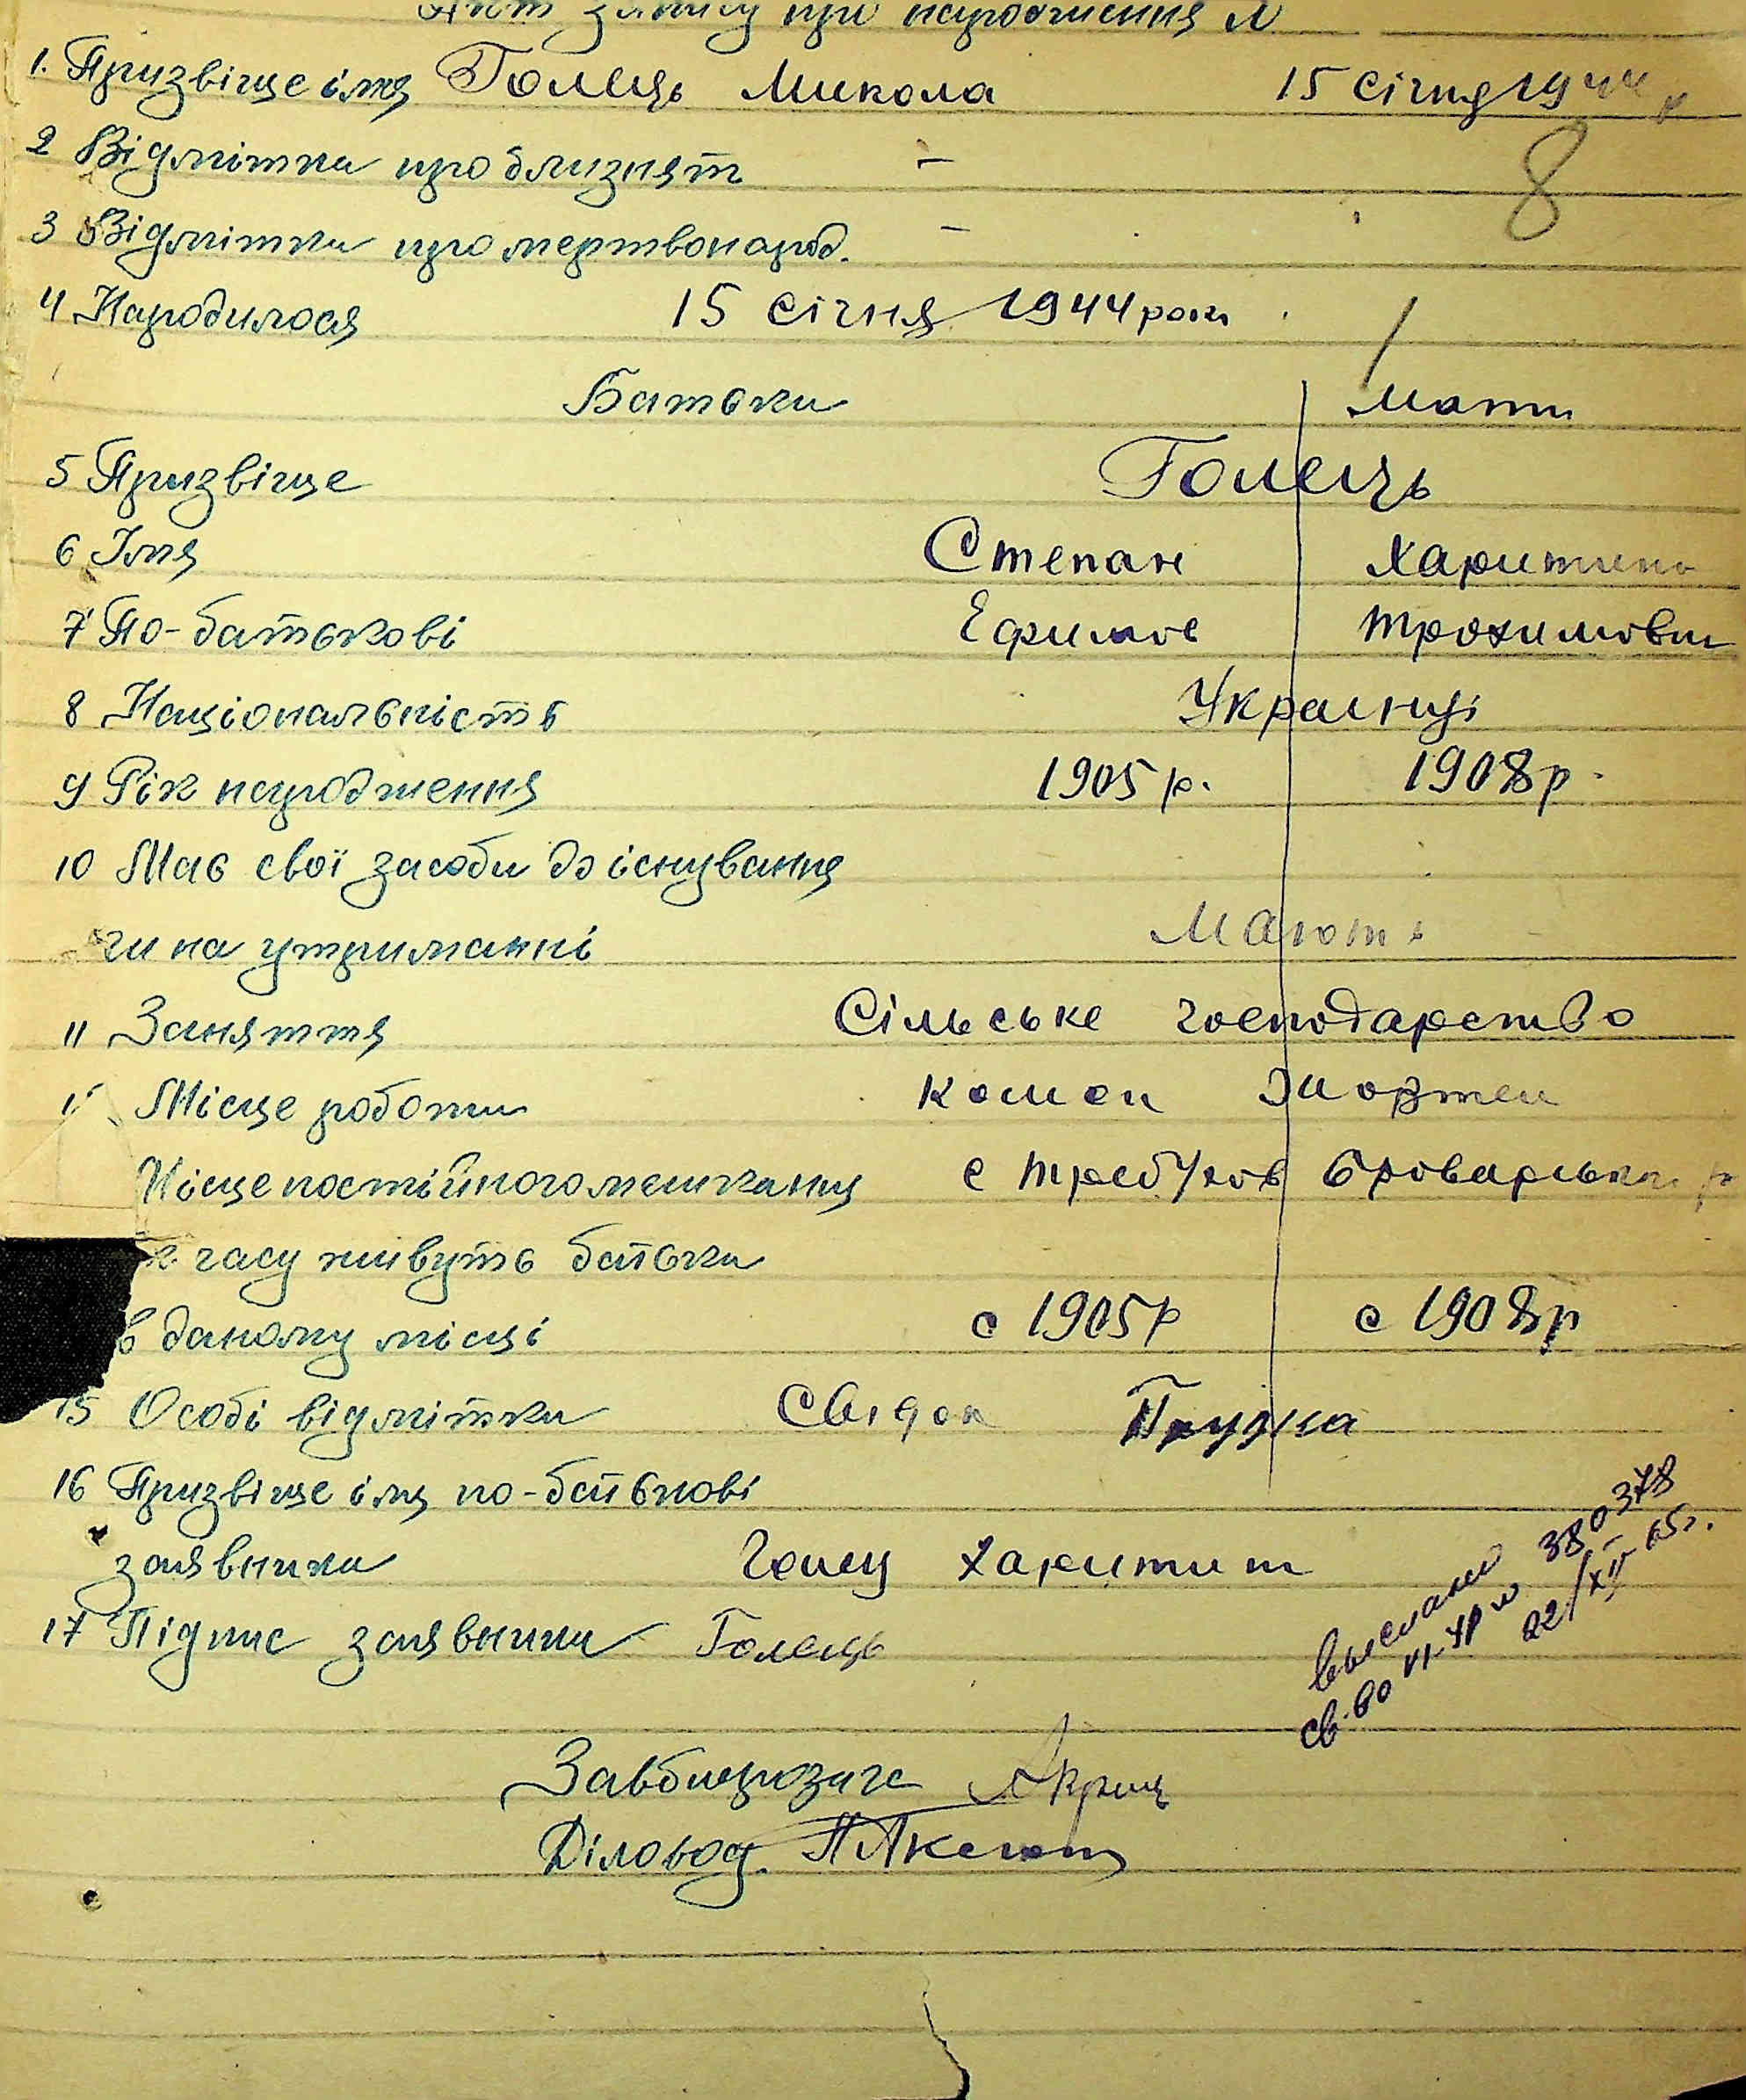 Акт запису про народження №
1. Призвіще імя Голець Микола 15 січня 1944 р
2 Відмітка про близнят –
3 Відмітка про мертвонарод. –
8
4 Народилося 15 січня 1944 року
Батьки мати
5 Призвіще Голець
6 Імя Степан Харитина
7 По-батькові Ефимов Трохимовна
8 Національність Українці
9 Рік народження 1905 р. 1908 р.
10 Має свої засоби до існування
чи на утриманні Мають
11 Заняття Сільське господарство
Місце роботи
Місце постійного мешкання с Требухов Броварськ р
часу живуть батьки
в даному місці с 1905 р с 1908 р
15 Особі відмітки Свідок
16 Призвіще імя по-батькові
заявника Голец Харитин
17 Підпис заявника Голець
Выслано
св.во 380378
22/XII-65 г.
Завбюрозагс
Діловод